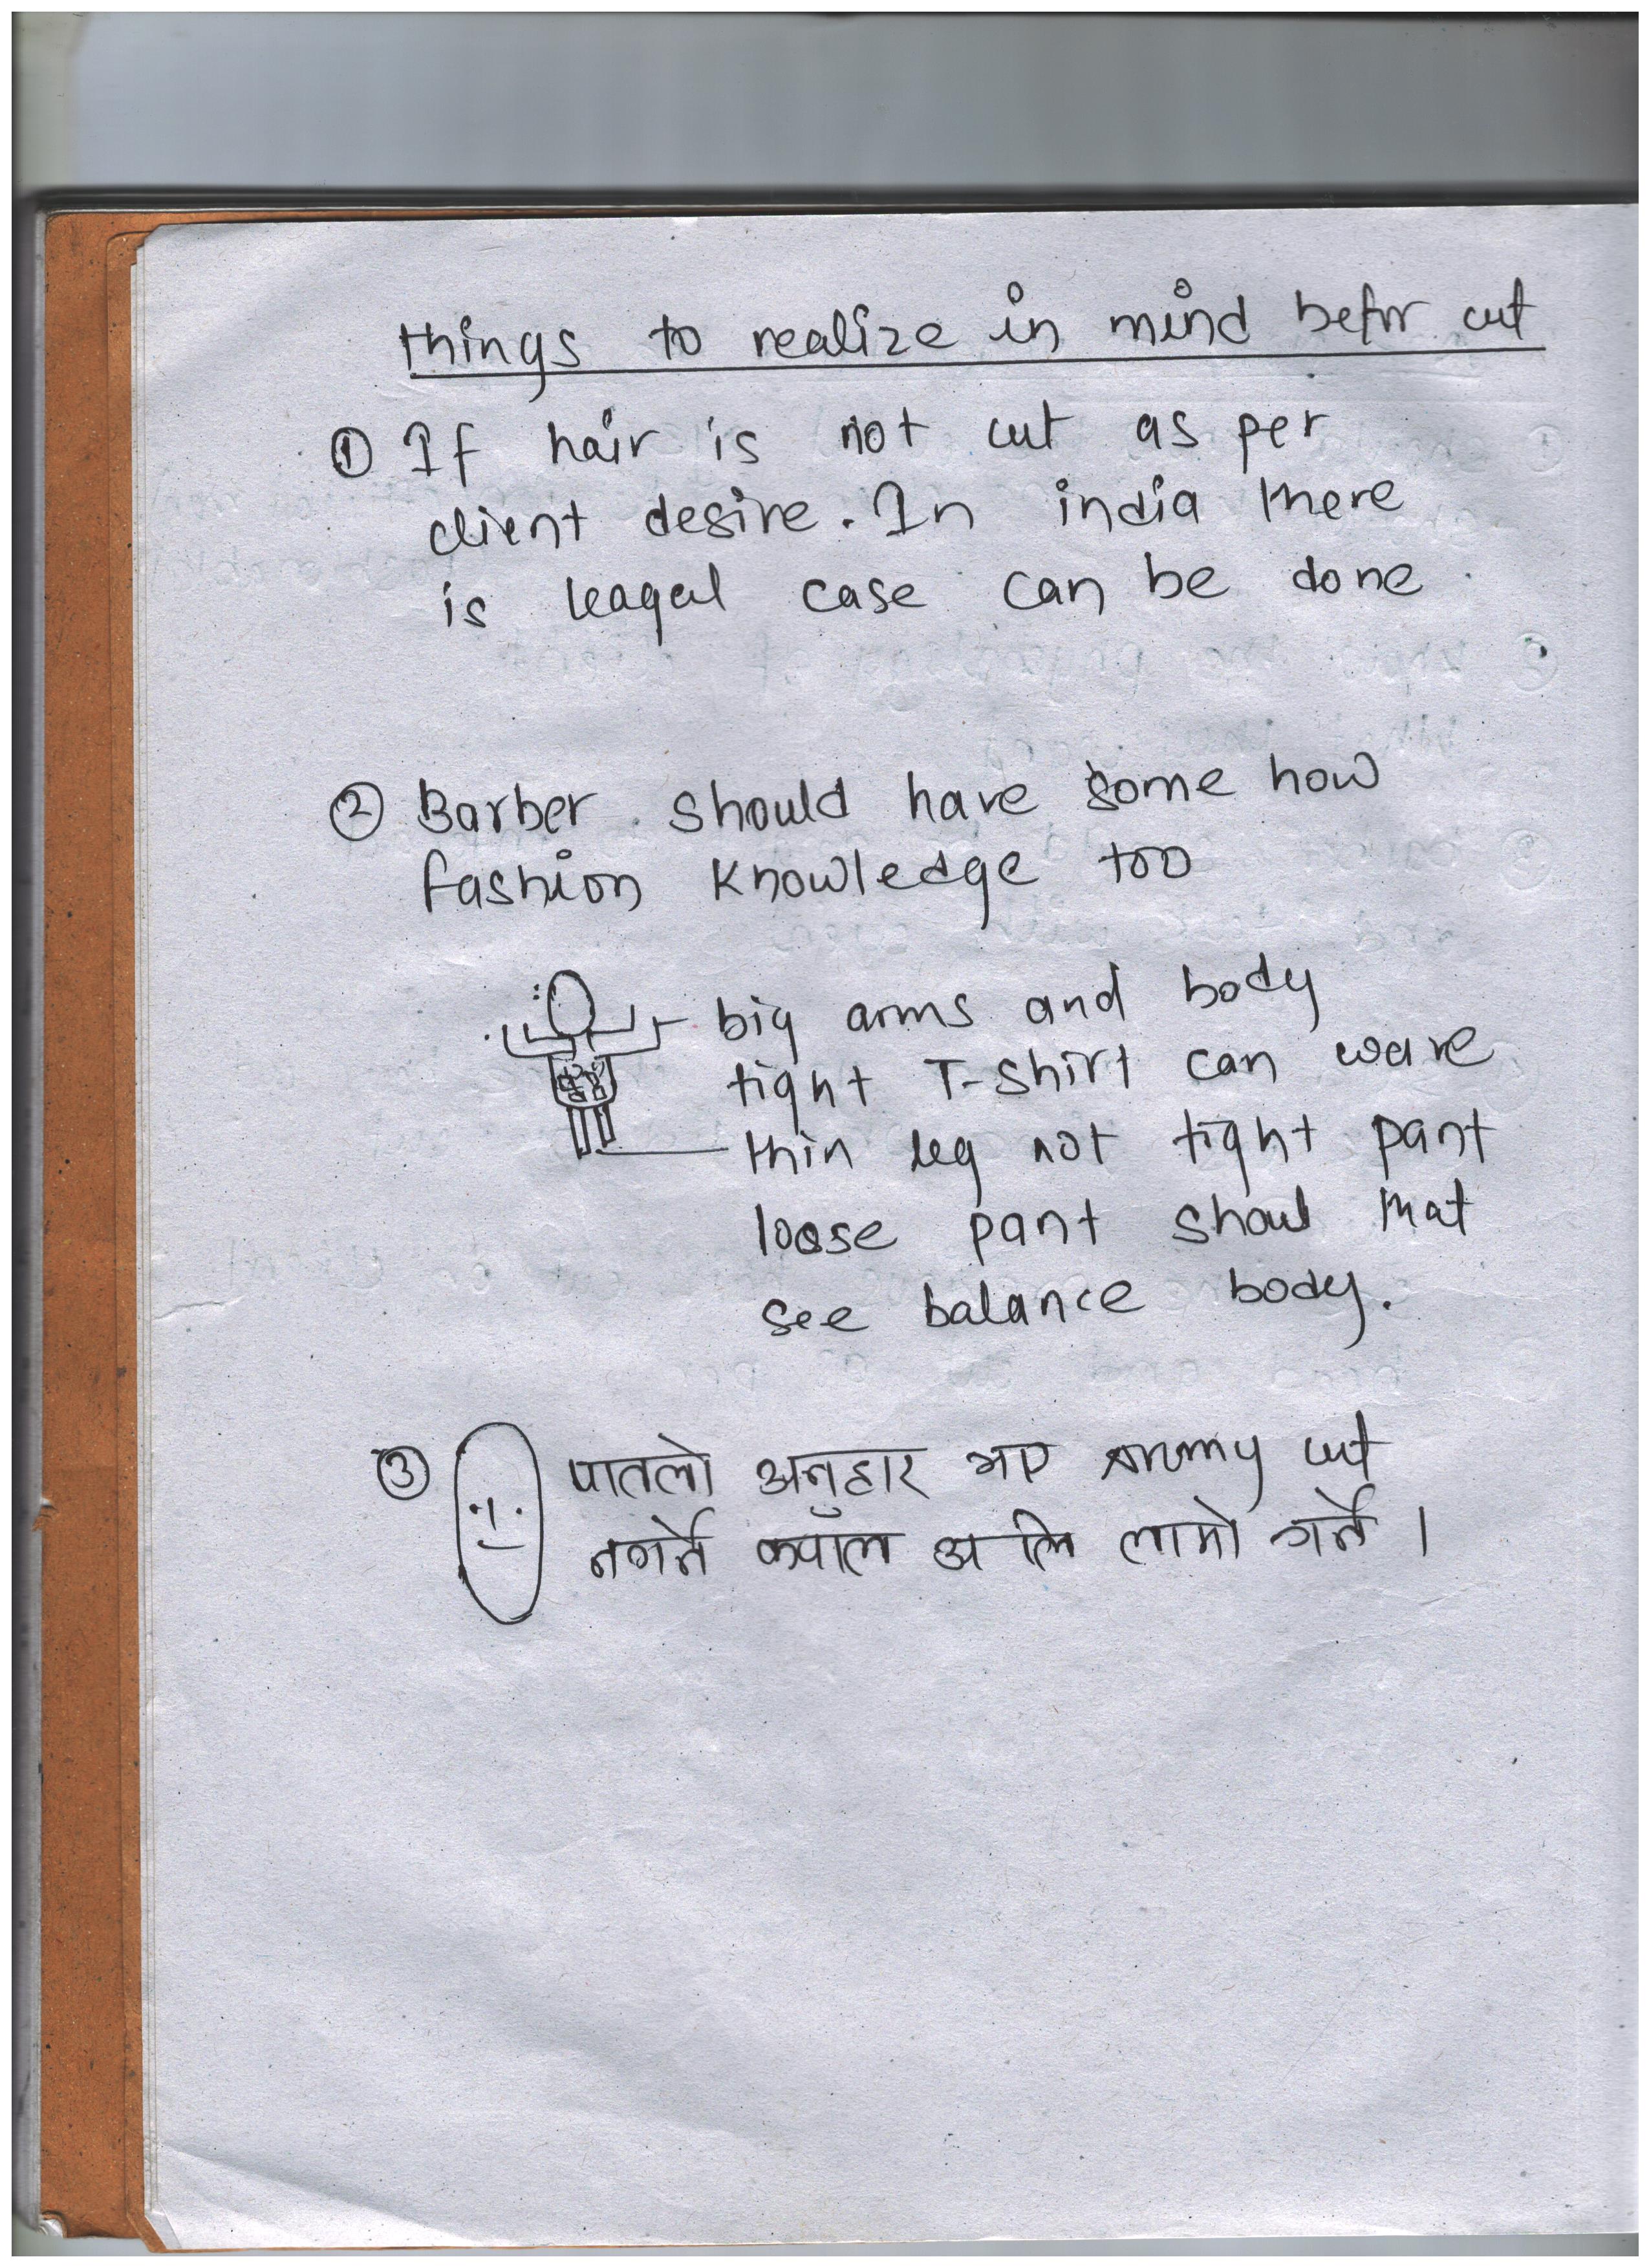 things to realize in mind befor cut
① If hair is not cut as per
client desire. In india there
is leagal case can be done
② Barber should have some how
fashion knowledge too
big arms and body
tight T-shirt can ware
thin leg not tight pant
loose pant shoul that
see balance body.
③ पातलो अनुहार भए Army cut
नगर्ने कपाल अलि लामो गर्ने ।